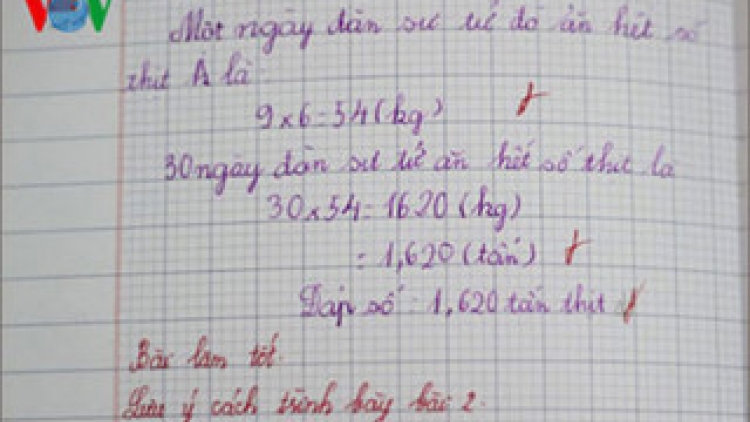 VOV
Một ngày đàn sư tử đó ăn hết số
thịt là
9 x 6 = 54 (kg)
30 ngày đàn sư tử ăn hết số thịt là
30 x 54 = 1620 (kg)
= 1,620 (tấn)
Đáp số : 1,620 tấn thịt
Bài làm tốt.
Lưu ý cách trình bày bài 2.